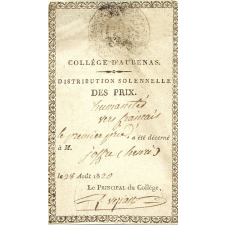 COLLÉGE D'AUBENAS.
DISTRIBUTION SOLENNELLE
DES PRIX.
humanités
vers français
le premier prix a été décerné
à M. joffre (henri)
le 28 Août 1820
Le PRINCIPAL du Collége,